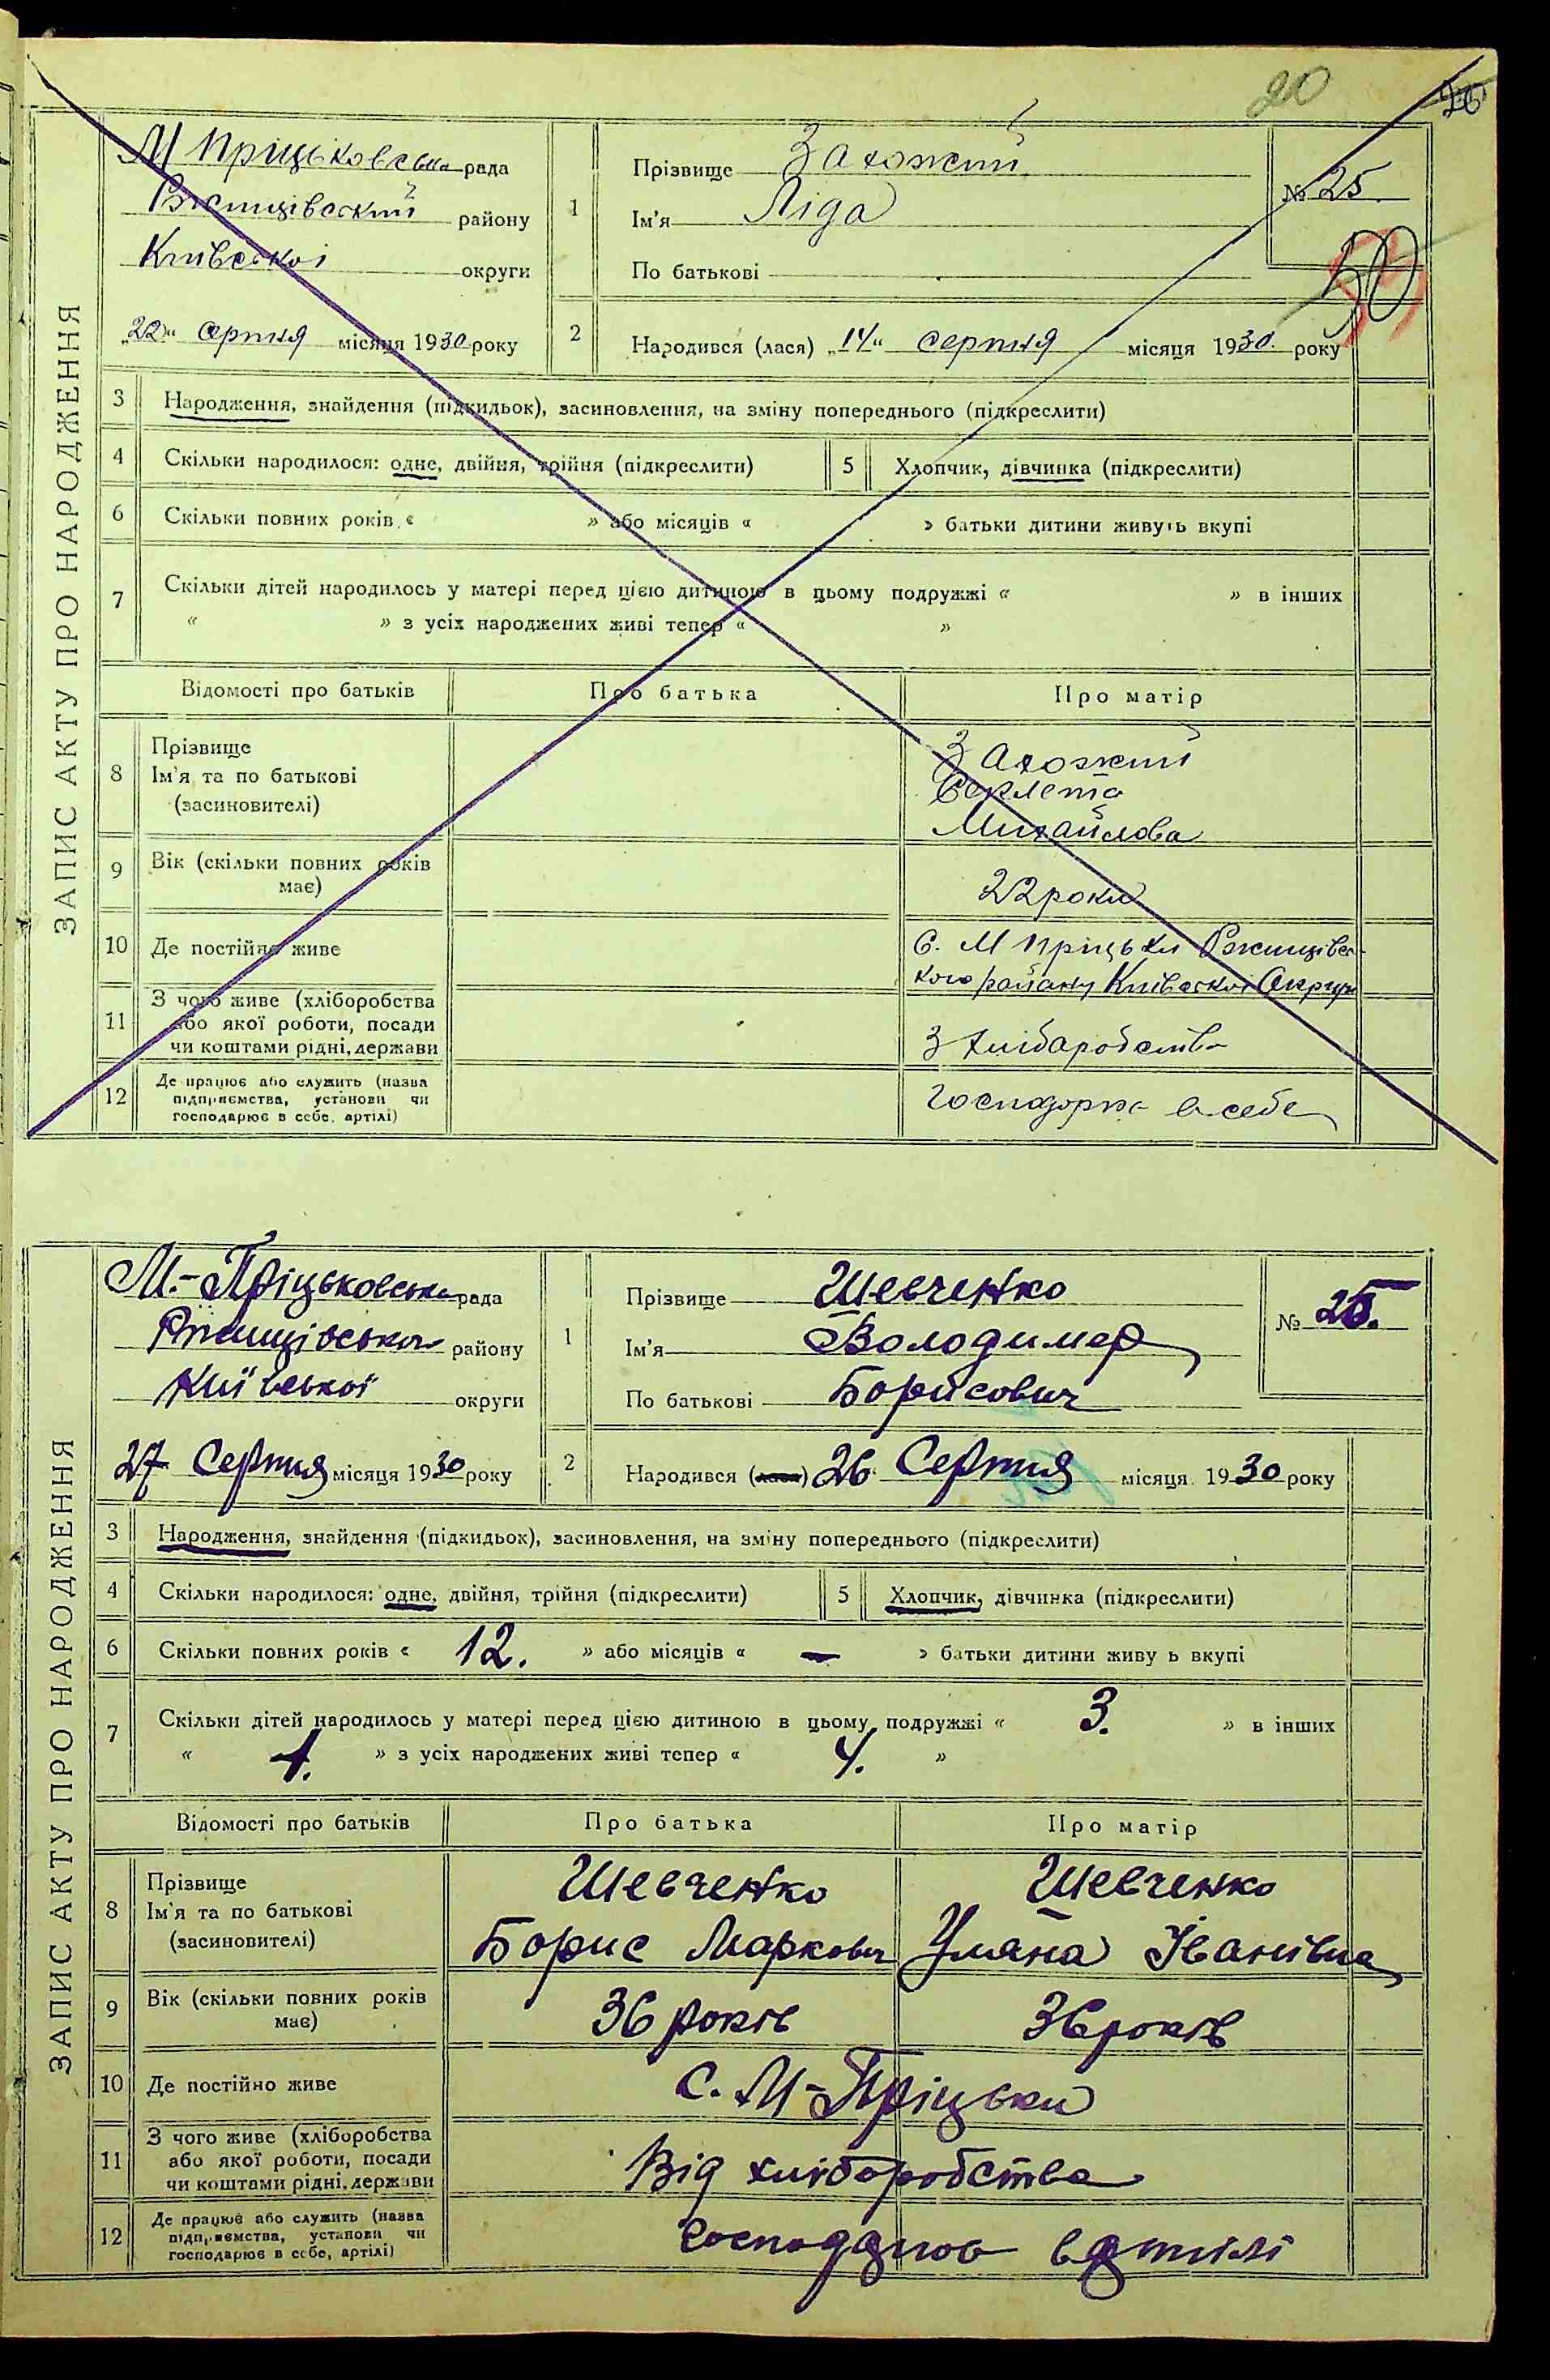 20
26
ЗАПИС АКТУ ПРО НАРОДЖЕННЯ
М Пріцьковська рада
Ржищівський району
Київської округи
„22“ серпня місяця 1930 року
1
Прізвище Захожий
Ім'я Ліда
По батькові
№ 25.
50
2 Народився (лася) „14“ серпня місяця 1930. року
3 Народження, знайдення (підкидьок), засиновлення, на зміну попереднього (підкреслити)
4 Скільки народилося: одне, двійня, трійня (підкреслити) 5 Хлопчик, дівчинка (підкреслити)
6 Скільки повних років « » або місяців « » батьки дитини живуть вкупі
7 Скільки дітей народилось у матері перед цією дитиною в цьому подружжі « » в інших
« » з усіх народжених живі тепер « »
Відомості про батьків Про батька Про матір
8 Прізвище
Ім'я та по батькові
(засиновителі)
Захожий
Секлета
Михайлова
9 Вік (скільки повних років
має)
22 роки
10 Де постійно живе
С. М Пріцьки Ржищівсь-
кого району Київської Округи
11 З чого живе (хліборобства
або якої роботи, посади
чи коштами рідні, держави
З хліборобства
12 Де працює або служить (назва
підприємства, установи чи
господарює в себе, артілі)
в себе
ЗАПИС АКТУ ПРО НАРОДЖЕННЯ
М.-Пріцьковська рада
району
Київської округи
27 Серпня місяця 1930 року
1
Прізвище Шевченко
Ім'я Володимер
По батькові Борисович
№ 25.
2 Народився (лася) 26. Серпня місяця 1930 року
3 Народження, знайдення (підкидьок), засиновлення, на зміну попереднього (підкреслити)
4 Скільки народилося: одне, двійня, трійня (підкреслити) 5 Хлопчик, дівчинка (підкреслити)
6 Скільки повних років « 12. » або місяців « — » батьки дитини живу ь вкупі
7 Скільки дітей народилось у матері перед цією дитиною в цьому подружжі « 3. » в інших
« 1. » з усіх народжених живі тепер « 4. »
Відомості про батьків Про батька Про матір
8 Прізвище
Ім'я та по батькові
(засиновителі)
Шевченко Шевченко
Борис Маркович Уляна Іванівна
9 Вік (скільки повних років
має)
36 років 36 років
10 Де постійно живе
С. М-Пріцьки
11 З чого живе (хліборобства
або якої роботи, посади
чи коштами рідні, держави
Від хліборобства
12 Де працює або служить (назва
підприємства, установи чи
господарює в себе, артілі)
в артілі